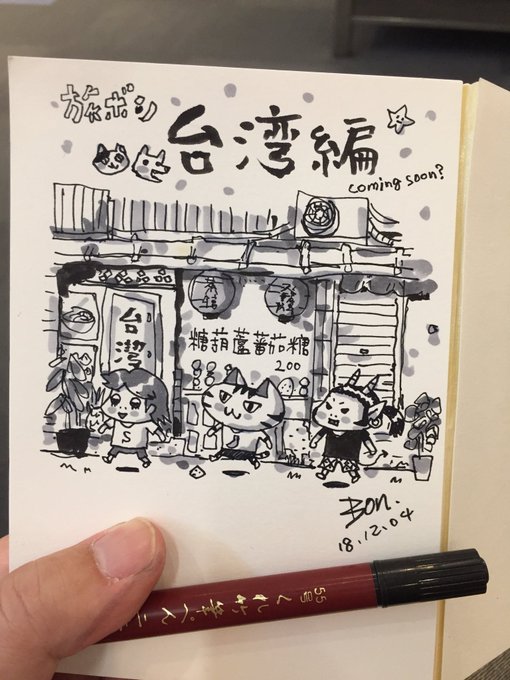 旅ボン
台湾編
coming soon?
台灣
糖葫蘆蕃茄糖
200
S
Bon.
18.12.04
55号 くれ竹筆ぺん